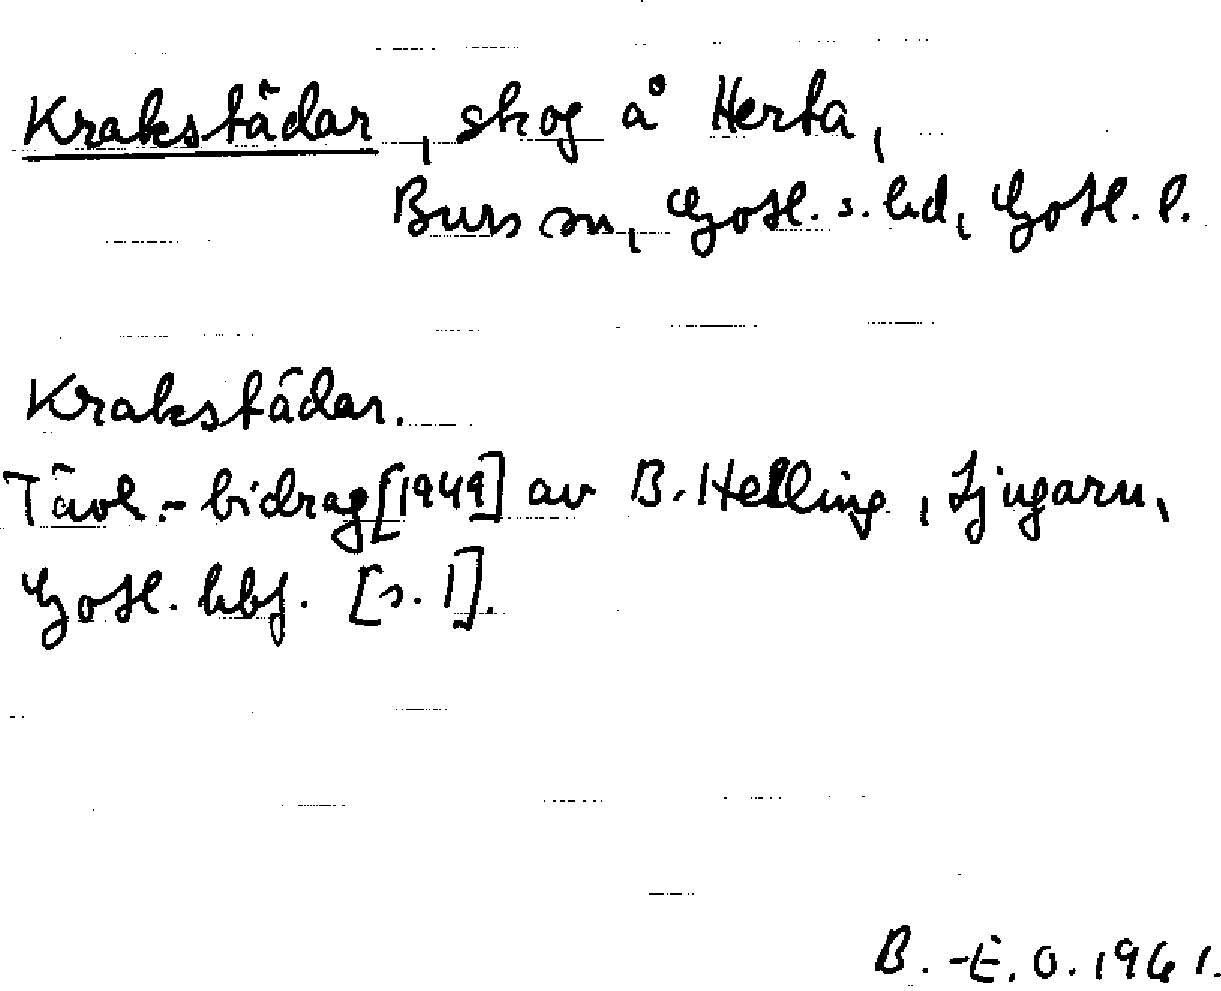 Krakstädar, skog å Herta,
Burs sn, Gotl. s. hd, Gotl. l.
Krakstädar.
Tävl.-bidrag [1949] av B. Helling, Ljugarn,
Gotl. hbf. [s. 1].
B.-E. O. 1961.